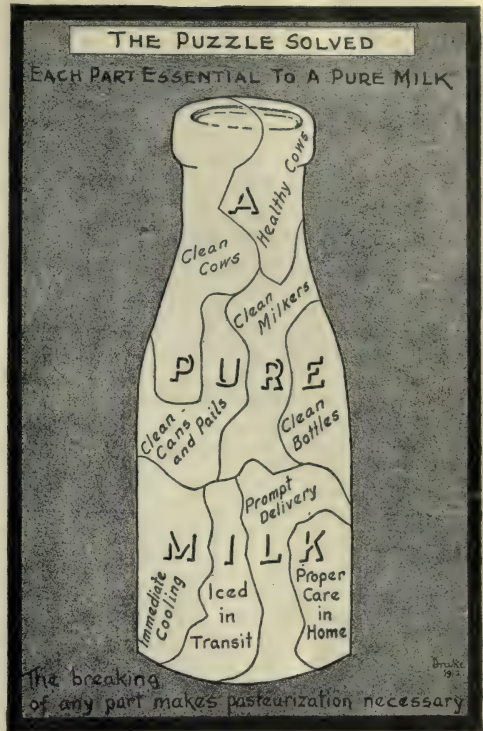 THE PUZZLE SOLVED
EACH PART ESSENTIAL TO A PURE MILK
A
Healthy Cows
Clean
Cows
Clean
Milkers
P U R E
Clean-
Cans
and Pails
Clean
Bottles
Prompt
Delivery
M I L K
Immediate
Cooling
Iced
in
Transit
Proper
Care
in
Home
Drake
1912
The breaking
of any part makes pasteurization necessary